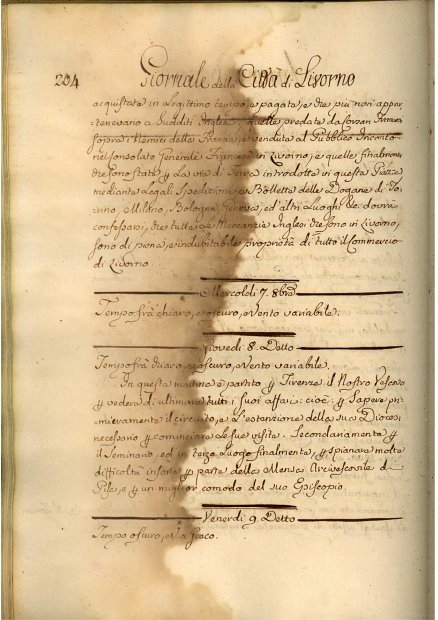 204 Giornale della Città di Livorno
acquistate in Legittimo tempo, e pagate, e che più non appar
tenevano a Sudditi Inglesi, quelle predate da
sopra i Nemici della Francia, e vendute al Pubblico Incanto
nel Consolato Generale Francese in Livorno, e quelle finalmente
che sono state p. La via di Terra introdotte in questa Piazza
mediante Legali Spedizioni, e Bollette delle Dogane di To
rino, Milano, Bologna, Genova, ed altri Luoghi &c. dovrà
confessarsi, che tutte le Mercanzie Inglesi che sono in Livorno,
sono di piena, e indubitabile proprietà di tutto il Commercio
di Livorno.
Mercoldi 7. 8bre
Tempo frà chiaro, e oscuro, e Vento variabile.
Giovedi 8. Detto
Tempo frà chiaro, e oscuro, e Vento variabile.
In questa mattina è partito p. Firenze il Nostro Vescovo
p. vedere di ultimare tutti i suoi affari: cioè: p. Sapere pri=
mieramente il circuito, e L'estenzione della sua Diocesi
necessario p. cominciare Le sue visite. Secondariamente p.
il Seminario, ed in terzo Luogo finalmente, p. spianare molte
difficoltà insorte p. parte della Mensa Arcivescovile di
Pisa, e p. un miglior comodo del suo Episcopio.
Venerdi 9. Detto
Tempo oscuro, e